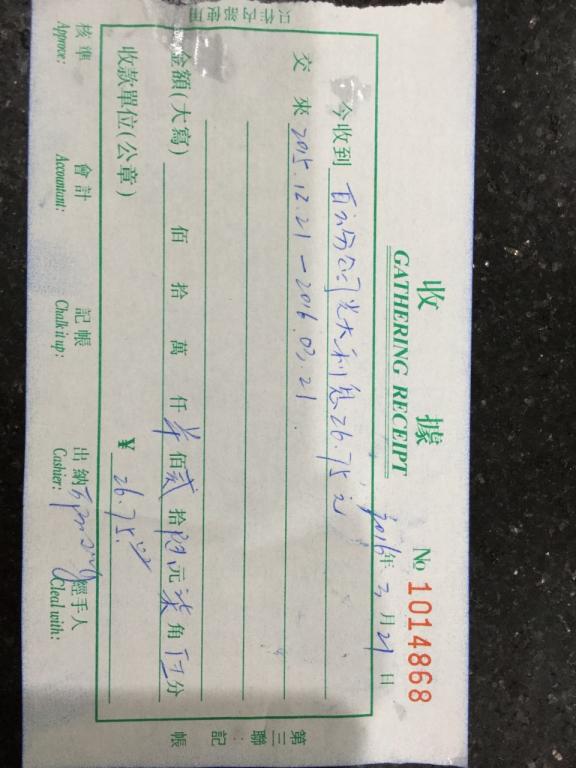 只作内部使用
收據
GATHERING RECEIPT
No 1014868
2016年3月21日
今收到 百云分公司光大利息26.75元
交來 2015.12.21-2016.03.21
金額(大寫) 佰拾萬仟 佰貳拾陆元柒角伍分
收款單位(公章) ¥ 26.75
核準 Approve: 會計 Accountant: 記帳 Chalk it up: 出納 Cashier: 經手人 Cleal with:
第三聯:記帳